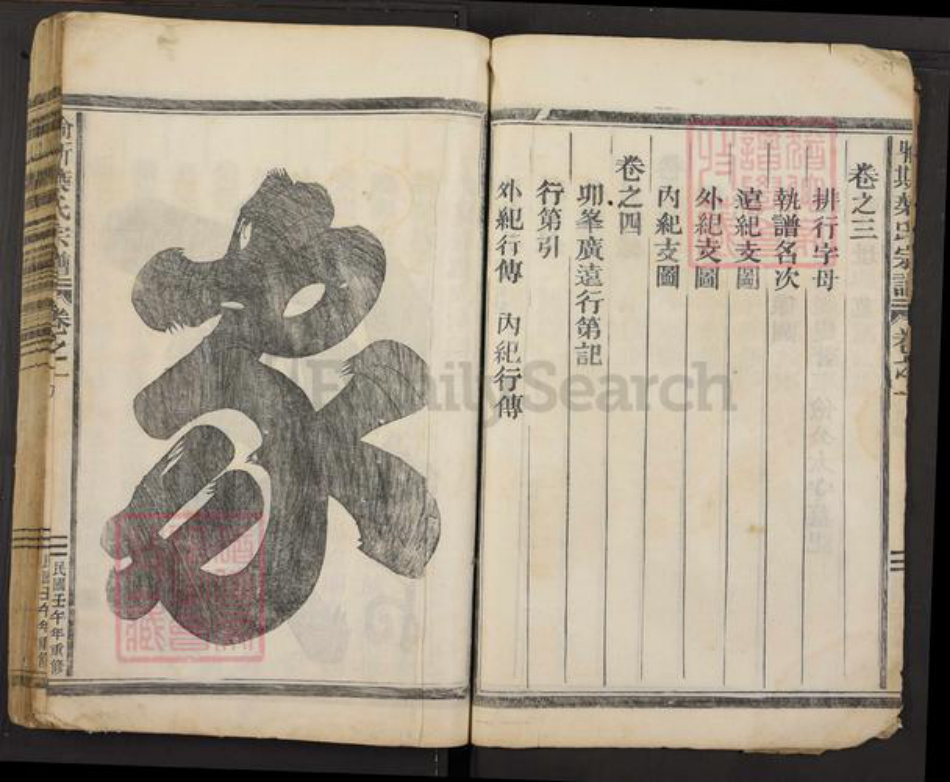 葉氏宗譜
卷之三
排行字母
執譜名次
遠紀支圖
外紀支圖
內紀支圖
卷之四
卯峯廣遠行第記
行第引
外紀行傳 內紀行傳
家
葉氏宗譜
卷之一
民國壬午年重修
FamilySearch